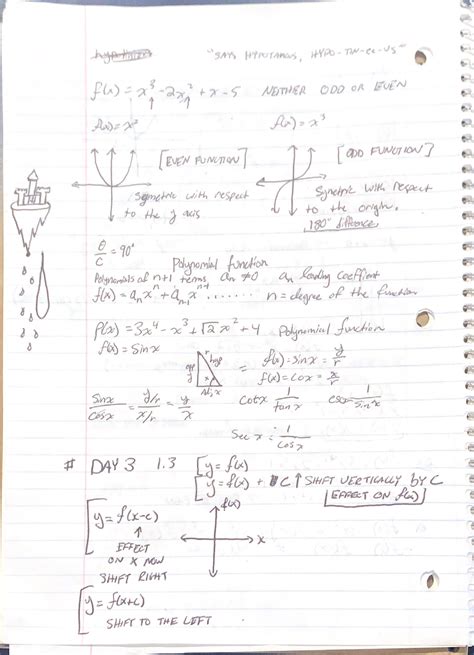 "SAYS HYPOTAMOUS, HYPO-TIN-EE-US"
f(x) = x³ - 2x² + x - 5 NEITHER ODD OR EVEN
f(x) = x² f(x) = x³
[EVEN FUNCTION] [ODD FUNCTION]
Symetric with respect
to the y axis
Symetric with respect
to the origin.
180° difference
θ/c = 90°
Polynomial function
Polynomials of n+1 terms aₙ ≠ 0 aₙ leading coefficient
f(x) = aₙxⁿ + aₙ₋₁xⁿ⁻¹ ....... n = degree of the function
p(x) = 3x⁴ - x³ + √2 x² + 4 Polynomial function
f(x) = sin x
opp y r hyp x Adj, x
= f(x) = sin x = y/r
f(x) = cos x = x/r
sin x / cos x = y/r / x/r = y/x
cot x 1/tan x csc x 1/sin x
sec x = 1/cos x
# DAY 3 1.3 [y = f(x)
[y = f(x) + C ↑ SHIFT VERTICALLY by C
[EFFECT ON f(x)]
[y = f(x-c) f(x)
↑ x
EFFECT
ON X NOW
SHIFT RIGHT
[y = f(x+c)
SHIFT TO THE LEFT